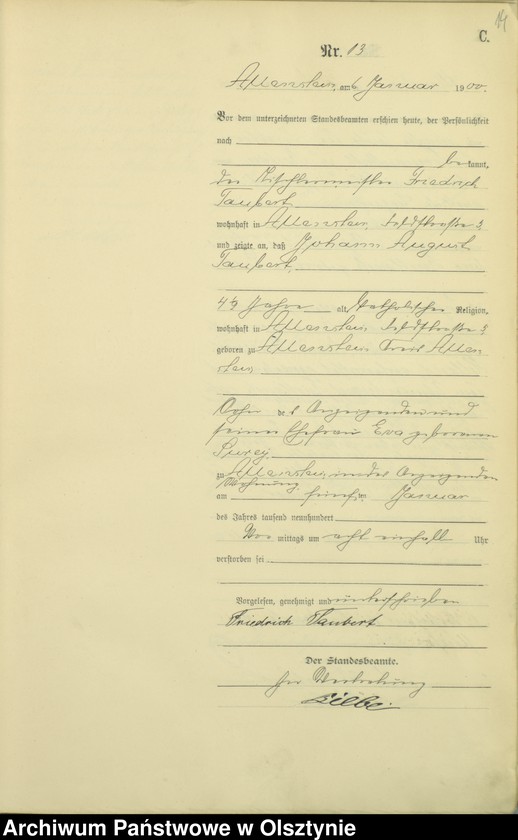 14
C.
Nr. 13
Allenstein, am 6 Januar 1900.
Vor dem unterzeichneten Standesbeamten erschien heute, der Persönlichkeit
nach
be kannt,
der Tischlermeister Friedrich
Taubert
wohnhaft in Allenstein,
und zeigte an, daß Johann August
Taubert,
alt, katholischer Religion,
wohnhaft in Allenstein,
geboren zu Allenstein Kreis Allen-
stein
Sohn des Anzeigenden und
seiner Ehefrau Eva geborenen
zu Allenstein, in des Anzeigenden
Wohnung
am fünften Januar
des Jahres tausend neunhundert
Vor mittags um acht einhalb Uhr
verstorben sei
Vorgelesen, genehmigt und unterschrieben
Friedrich Taubert
Der Standesbeamte.
In Vertretung
Archiwum Państwowe w Olsztynie